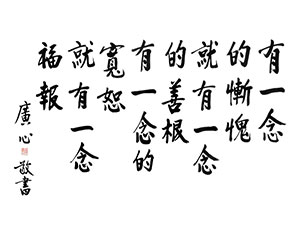 有一念
的慚愧
就有一念
的善根
有一念的
寬恕
就有一念
福報
廣心
敬書